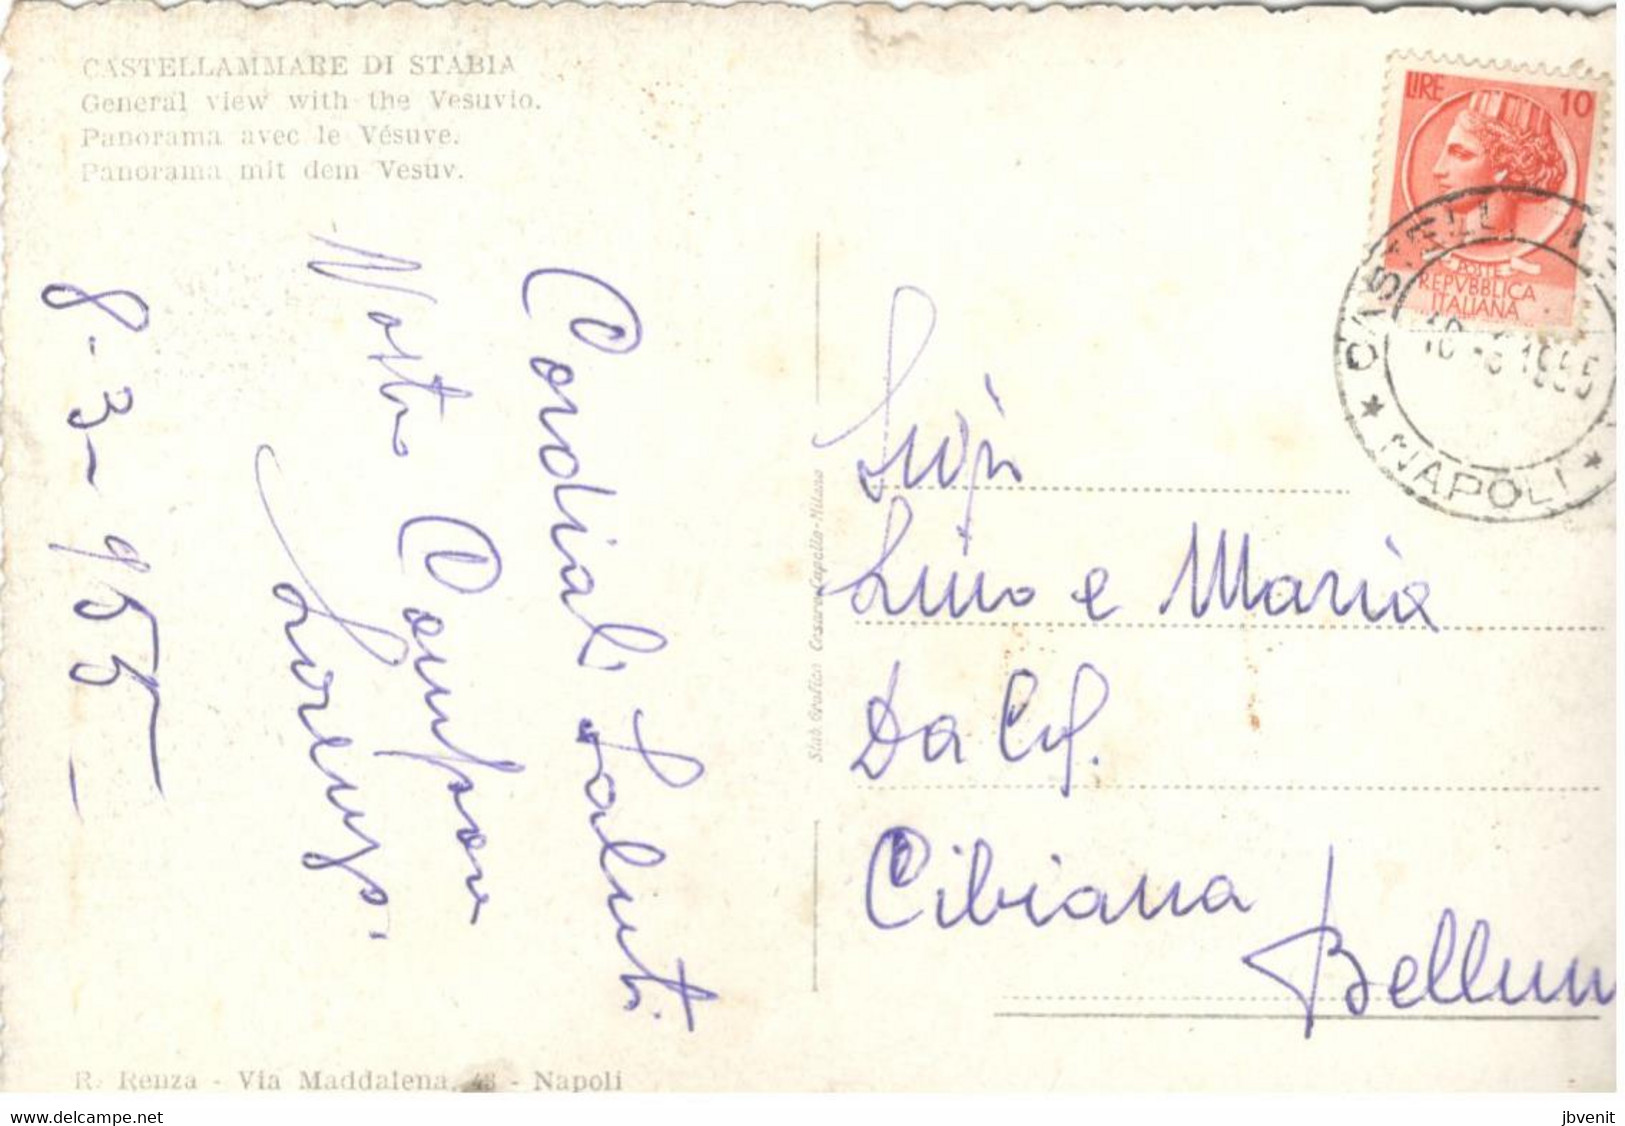 CASTELLAMMARE DI STABIA
General view with the Vesuvio.
Panorama avec le Vésuve.
Panorama mit dem Vesuv.
Cordiali Saluti
Vostro Compare
Lorenzo.
8-3-955
Stab. Grafico Cesare Capello-Milano
LIRE 10
POSTE
REPVBBLICA
ITALIANA
10 - 3 1955
NAPOLI
Sigri
Lino e Maria
Da Col.
Cibiana
Bellun
R. Renza - Via Maddalena, 43 - Napoli
www.delcampe.net
jbvenit